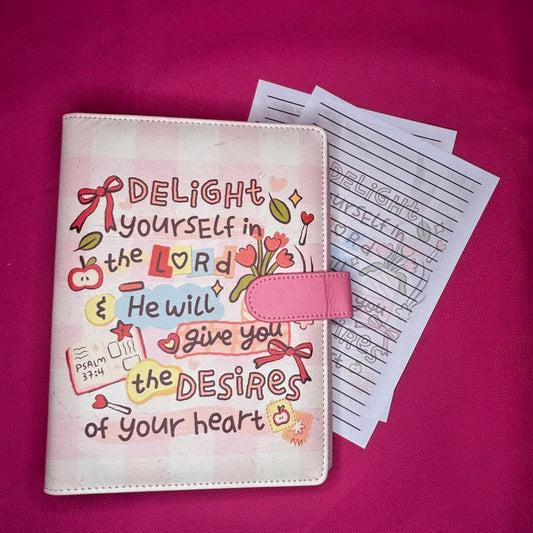 DELIGHT
yourself in
the LORD
& He will
give you
PSALM
37:4
the DESIRES
of your heart
DELIGHT
yourself in
the LORD